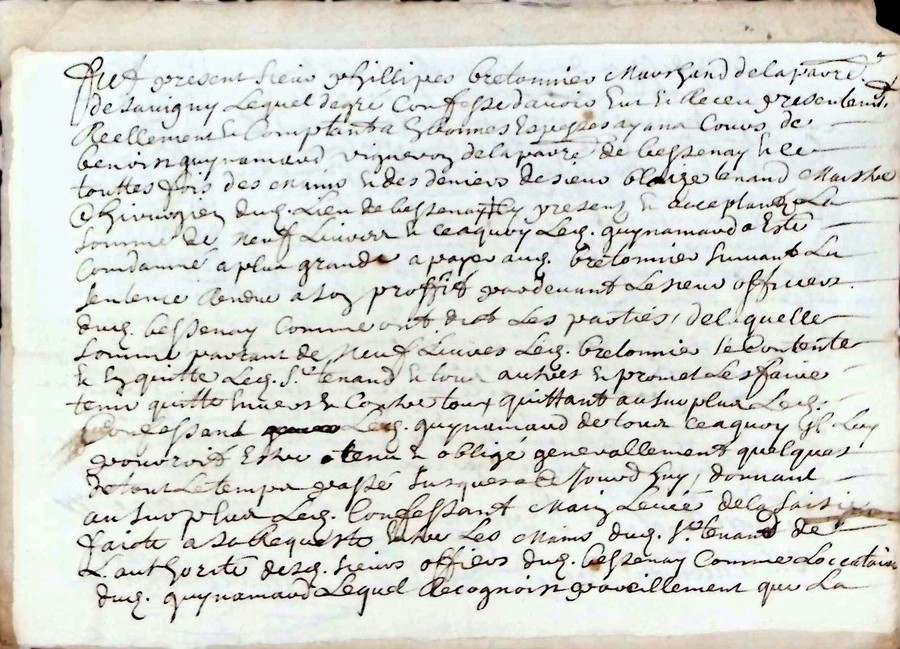 Fut present sieur Phillipes bretonnier Marchand de la parr.e
de Savigny Lequel de gré Confesse davoir Eut & Receu presentem.t
Reellement & Comptant a bonnes Especes ayana Cours de
benoist guynamaud vigneron de la parre de bessenay & ce
touttes fois des Mains & des deniers de sieur blaize tenand Maistre
Chirurgien dud. Lieu de bessenay Cy present & acceptant La
Somme de Neuf Livres & ceaquoy Led. guynamaud a Esté
Condanné a plus grande a payer aud. bretonnier Suivant La
Sentence Rendue a Son proffit pardevant Le sieur officiers
dud. bessenay Comme ont dict Les parties, de laquelle
Somme partant de Neuf Livres Led. bretonnie Se Contente
& En quitte Led. S.r tenand & tous autres & promet Les faire
tenir quitte Envers & Contre tous quittant au surplus Led.
Confessant Led. guynamaud de tout ceaquoy Il Luy
pouvroit Estre tenu & obligé generallement quelquas
de tout Le temps passé Jusques a ce Jourd'huy, donnant
au surplus Led. Confessant Main Levée de la Saisie
faicte a Sa Requeste Entre Les Mains dud. S.r tenand de
L'authorité desd. sieurs offiers dud. bessenay Comme Loccataire
dud. guynamaud Lequel Recognoist pareillement que La